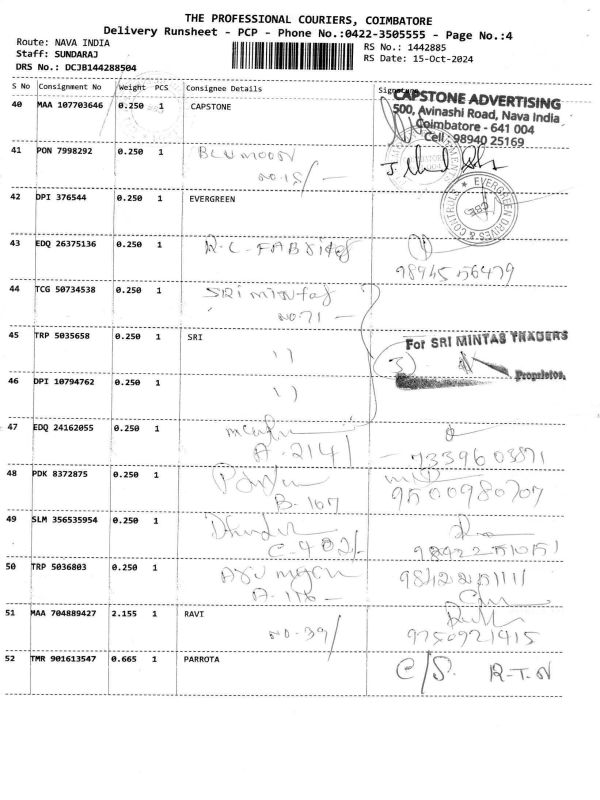 THE PROFESSIONAL COURIERS, COIMBATORE
Delivery Runsheet - PCP - Phone No.:0422-3505555 - Page No.:4
Route: NAVA INDIA
Staff: SUNDARAJ
DRS No.: DCJB144288504
RS No.: 1442885
RS Date: 15-Oct-2024
S No Consignment No Weight PCS Consignee Details Signature
40 MAA 107703646 0.250 1 CAPSTONE
CAPSTONE ADVERTISING
500, Avinashi Road, Nava India
Coimbatore - 641 004
Cell : 98940 25169
41 PON 7998292 0.250 1 BLUMOON
NO.15/-
42 DPI 376544 0.250 1 EVERGREEN
EVERGREEN DRIVES & CONTROLS
CBE
43 EDQ 26375136 0.250 1
98945 56479
44 TCG 50734538 0.250 1 SRI
NO:71 -
45 TRP 5035658 0.250 1 SRI
For SRI MINTAS TRADERS
3
Proprietor.
46 DPI 10794762 0.250 1
47 EDQ 24162055 0.250 1
A-2141
7339603871
48 PDK 8372875 0.250 1
B-107
9500980707
49 SLM 356535954 0.250 1
C-402/-
50 TRP 5036803 0.250 1
A-116 -
51 MAA 704889427 2.155 1 RAVI
NO.39/
9750921415
52 TMR 901613547 0.665 1 PARROTA
C/S. R-T-N